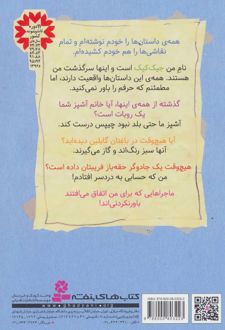 همه‌ی داستان‌ها را خودم نوشته‌ام و تمام
نقاشی‌ها را هم خودم کشیده‌ام.
نام من جیک‌کیک است و اینها سرگذشت من
هستند. همه‌ی این داستان‌ها واقعیت دارند، اما
مطمئنم که حرفم را باور نمی‌کنید.
گذشته از همه‌ی اینها، آیا خانم آشپز شما
یک روبات است؟
آشپز ما حتی بلد نبود چیپس درست کند.
آیا هیچ‌وقت در باغتان گابلین دیده‌اید؟
آنها سبز رنگ‌اند و گاز می‌گیرند.
هیچ‌وقت یک جادوگر حقه‌باز فریبتان داده است؟
من که حسابی به دردسر افتادم!
ماجراهایی که برای من اتفاق می‌افتند
باورنکردنی‌اند!
کتاب‌های بنفشه